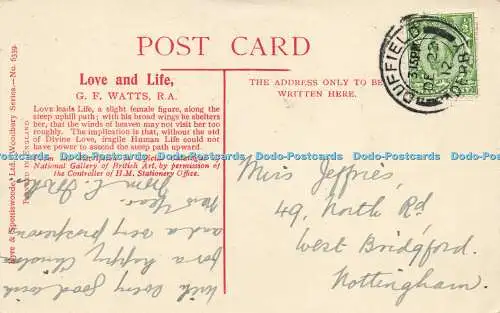 POST CARD
Love and Life,
G. F. WATTS, R.A.
Love leads Life, a slight female figure, along the
steep uphill path; with his broad wings he shelters
her, that the winds of heaven may not visit her too
roughly. The implication is that, without the aid
of Divine Love, fragile Human Life could not
have power to ascend the steep path upward.
National Gallery of British Art, by permission of
the Controller of H.M. Stationery Office.
Eyre & Spottiswoode, Ltd., "Woodbury Series—No. 6339.
THE ADDRESS ONLY TO BE
WRITTEN HERE.
DUFFIELD
DERBY
DE 22
Miss Jeffries,
49, North Rd
West Bridgford.
Nottingham.
With every good wish
for a happy Christmas
and a very prosperous
New Year.
Dodo-Postcards Dodo-Postcards Dodo-Postcards Dodo-Postcards Dodo-Postcards